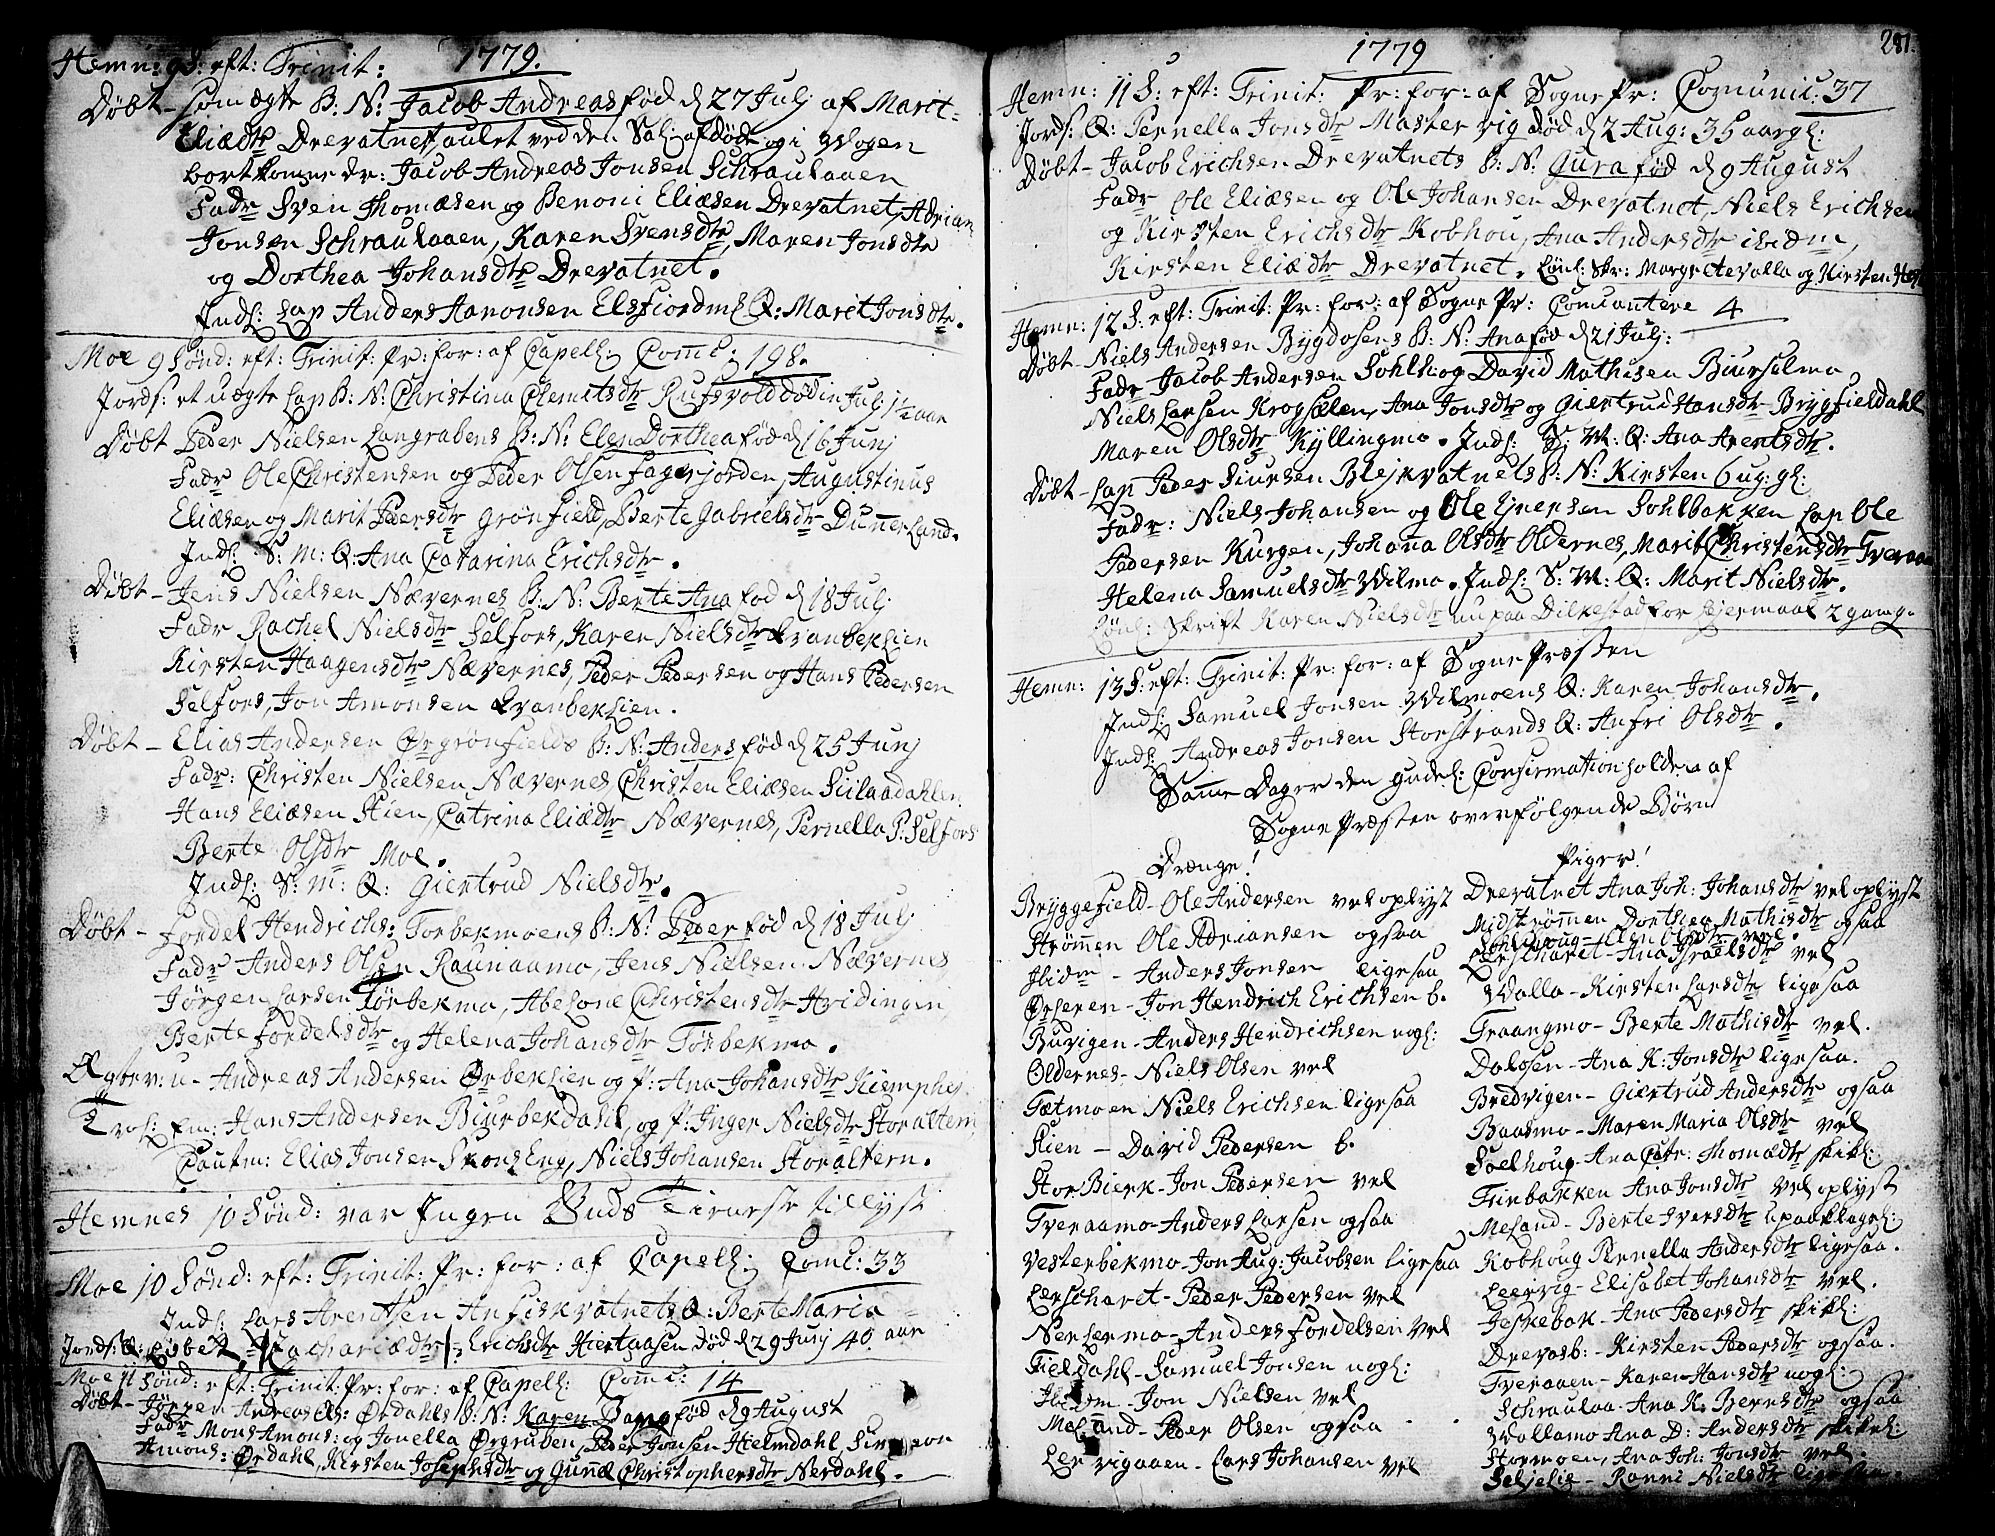 1779.
Hemn: 9 S: eft: Trinit:
Døbt - som ægte B: N: Jacob Andreas fød d 27 Julj af Marit
Eliædtr Drevatnet, aulet ved den Sal: afdøde og i Wogen
bortkomne dr: Jacob Andreas Jonsen Schraulaaen
Fadr Sven Thomæsen og Benoni Eliæsen Drevatnet, Adrian
Jonsen Schraulaaen, Karen Svensdtr, Maren Jonsdtr
og Dorthea Johansdtr Drevatnet.
Indl: Lap Anders Aanonsen Elsfiordens Q: Marit Jonsdtr.
Moe 9 Sønd: eft: Trinit: Pr: for: af Capell: Comc: 198.
Jords: et uægte Lap B: N: Christina Clemetsdtr Rufsvold død in Julj 1½ aar
Døbt Peder Nielsen Langrabens B: N: Elen Dorthea fød d 16 Junj
Fadr Ole Christensen og Peder Olsen Fagerjorden, Augustinus
Eliæsen og Marit Pedersdtr Grønfield, Berte Gabrielsdtr Dunnerland.
Indl: S: M: Q: Ana Catarina Erichsdtr.
Døbt - Jens Nielsen Nævernes B: N: Berte Ana fød d 18 Julj
Fadr Rachel Nielsdtr Selfors, Karen Nielsdtr Evanbeklien
Kirsten Haagensdtr Nævernes, Peder Pedersen og Hans Pedersen
Selfors, Jon Amonsen Evanbeklien.
Døbt - Elias Andersen Ørgrønfields B: N: Anders fød d 25 Junj
Fadr: Christen Nielsen Nævernes, Christen Eliæsen Siilaadahlen
Hans Eliæsen Stien, Catrina Eliædtr Nævernes, Pernella P: Selfors
Berte Olsdtr Moe.
Indl: S: M: Q: Giertrud Nielsdtr.
Døbt - Fordel Hendrichs: Torbekmoens B: N: Peder fød d 18 Julj
Fadr Anders Olsen Raunaamo, Jens Nielsen Nævernes
Jørgen Larsen Tørbekmo, Abelone Christensdtr Hvidingen
Berte Fordelsdtr og Helena Johansdtr Tørbekmo.
Ægtev: u - Andreas Andersen Ørbeklien og P: Ana Johansdtr Kiemphej
Trol: Em: Hans Andersen Biurbekdahl, og P: Inger Nielsdtr Storaltern
Cautm: Elias Jonsen Skonseng, Niels Johansen Storaltern.
Hemnes 10 Sønd: var Ingen Guds Tieneste tillyst
Moe 10 Sønd: eft: Trinit: Pr: for: af Capell: Comc: 33
Indl: Lars Arentsen Anfiskvatnets Q: Berte Maria
Jords: Q: Lisbet Zachariædtr Erichsdtr Hiertaasen død d 29 Junj 40 aar
Moe 11 Sønd: eft: Trinit: Pr: for: af Capell: Comc: 14
Døbt - Jørgen Andreas Ols: Ørdahls B: N: Karen Bang fød d 9 August
Fadr Mons Amons: og Jonella Ørgruben, Peder Jonsen Hielmdahl
Amons: Ørdahl, Kirsten Josephsdtr og Gunnel Christophersdtr Nerdahl.
1779
281.
Hemn: 11 S: eft: Trinit: Pr: for: af Sogne Pr: Comunic: 37
Jords: Q: Pernella Jonsdtr Mastervig død d 2 Aug: 35 aar gl:
Døbt - Jacob Erichsen Drevatnets B: N: Gura fød d 9 August
Fadr Ole Eliæsen og Ole Johansen Drevatnet, Niels Erichsen
og Kirsten Erichsdtr Kobhou, Ana Andersdtr ibidm,
Kirsten Eliædtr Drevatnet. Lønl: Skr: Margrete Valla og Kirsten
Hemn: 12 S: eft: Trinit: Pr: for: af Sogne Pr: Comunicantere 4
Døbt - Niels Andersen Bygdosens B: N: Ana fød d 21 Julj:
Fadr Jacob Andersen Sohlh: og David Mathisen Biurselmo
Niels Larsen Krogsælen, Ana Jonsdtr og Giertrud Hansdtr Brygfieldahl
Maren Olsdtr Kyllingmo. Indl: S: M: Q: Ana Arentsdtr.
Døbt - Lap Peder Siursen Blejkvatnets B: N: Kirsten 6 ug: gl:
Fadr: Niels Johansen og Ole Ejversen Sohlbakken Lap Ole
Pedersen Kurgen, Johanna Olsdtr Oldernes, Marit Christensdtr Tveraa
Helena Samuelsdtr Wilmo. Indl: S: M: Q: Marit Nielsdtr.
Lønl: Skrift Karen Nielsdtr nu paa Dilkestad for Lejermaal 2 gang.
Hemn: 13 S: eft: Trinit: Pr: for: af Sogne Præsten
Indl: Samuel Jonsen Wilmoens Q: Karen Johansdtr.
Indl: Andreas Jonsen Storstrands Q: Anfri Olsdtr.
Samme Dag er den gudel: Confirmation holden af
Sogne Præsten over følgende Børn
Drænge!
Bryggefield - Ole Andersen vel oplyst
Strømmen Ole Adriansen ogsaa
Ibidm - Anders Jonsen ligesaa
Ørseren - Jon Hendrich Erichsen b.
Buvigen - Anders Hendrichsen nogl:
Oldernes - Niels Olsen vel
Tætmoen Niels Erichsen ligesaa
Stien - David Pedersen b.
Stor Bierk - Jon Pedersen vel
Tveraamo - Anders Larsen ogsaa
Vesterbekmo - Jon Aug: Jacobsen ligesaa
Lerscharet - Peder Pedersen vel
Nersermo - Anders Fordelsen vel
Fieldahl - Samuel Jonsen nogl:
Ibidm - Jon Nielsen vel
Mosand - Peder Olsen ogsaa
Lervigaaen - Lars Johansen vel
Piger!
Drevatnet Ana Joh: Johansdtr vel oplyst
Midstrømmen Dorthea Mathisdtr ogsaa
Sohlhoug - Elen Olsdtr vel.
Lerscharet - Ana Israelsdtr vel
Walla - Kirsten Larsdtr ligesaa
Fraangmo - Berte Mathisdtr vel.
Dalosen - Ana K: Jonsdtr ligesaa.
Bredvigen - Giertrud Andersdtr ogsaa
Baasmo - Maren Maria Olsdtr vel
Soelhoug - Ana Catr: Thomædtr skikl:
Trinbakken Ana Jonsdtr vel oplyst
Mesand - Berte Iversdtr upaaklagel:
Kobhoug Pernella Andersdtr ligesaa.
Leervig - Elisabet Johansdtr vel.
Jeskebak - Ana Pedersdtr skikl:
Drevasb: - Kirsten Pedersdtr ogsaa.
Tveraaen - Karen Hansdtr nogl:
Schraulaa - Ana K: Berntsdtr ogsaa
Wallamo Ana D: Andersdtr skikl:
Stormoen, Ana Joh: Jonsdtr vel.
Seljelie - Ranni Nielsdtr ligesaa.